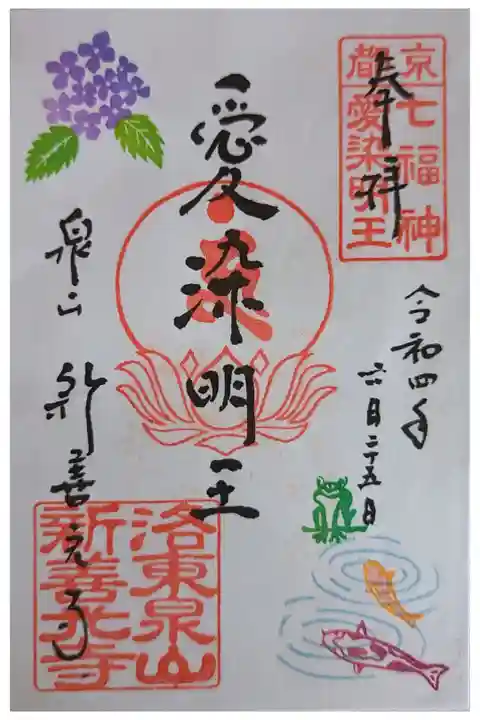 奉拝
京都
七福神
愛染明王
愛染明王
令和四年
六月二十五日
泉山 新善光寺
洛東泉山
新善光寺